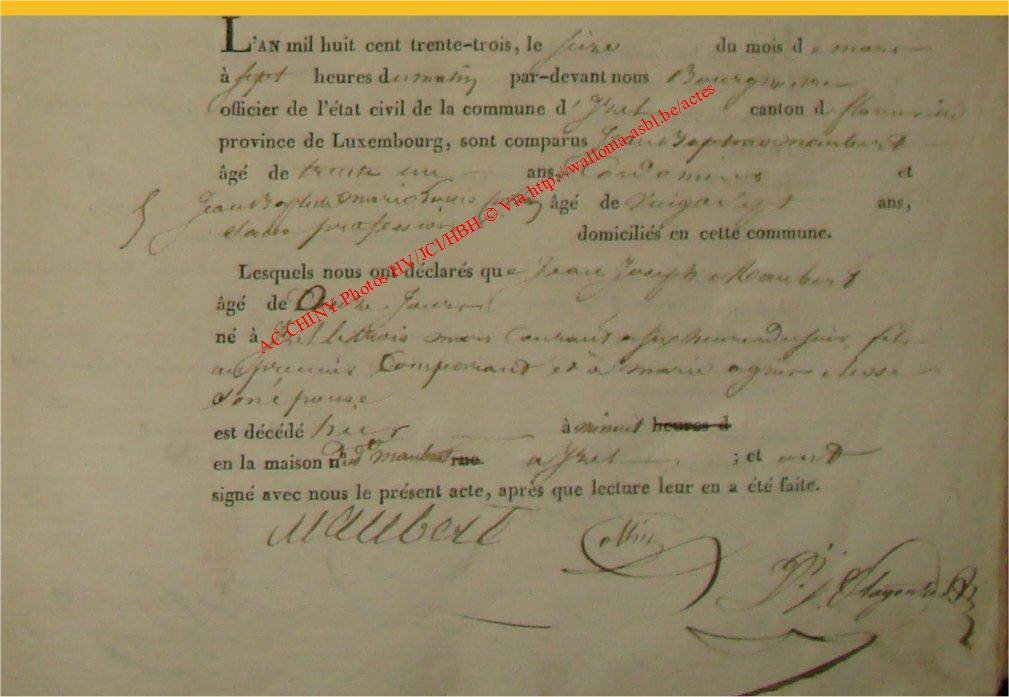 L'AN mil huit cent trente-trois, le seize du mois de mars
à sept heures du matin par-devant nous Bourgmestre
officier de l'état civil de la commune d'Izel canton de florenville
province de Luxembourg, sont comparus Jean Baptiste maubert
âgé de trente un ans, et
Jean Baptiste marie Louis âgé de ans,
sans profession domiciliés en cette commune.
Lesquels nous ont déclarés que Jean Joseph Maubert
âgé de Douze Jours
né à Izel le trois mars courant a six heures du soir, fils
au premier Comparant et à marie agnes
son épouse
est décédé hier à minuit heures d
en la maison n° de maubert rue a Izel ; et ont
signé avec nous le présent acte, après que lecture leur en a été faite.
Maubert
AC.CHINY Photos HV/JCl/HBH © Via http://wallonia.asbl.be/actes